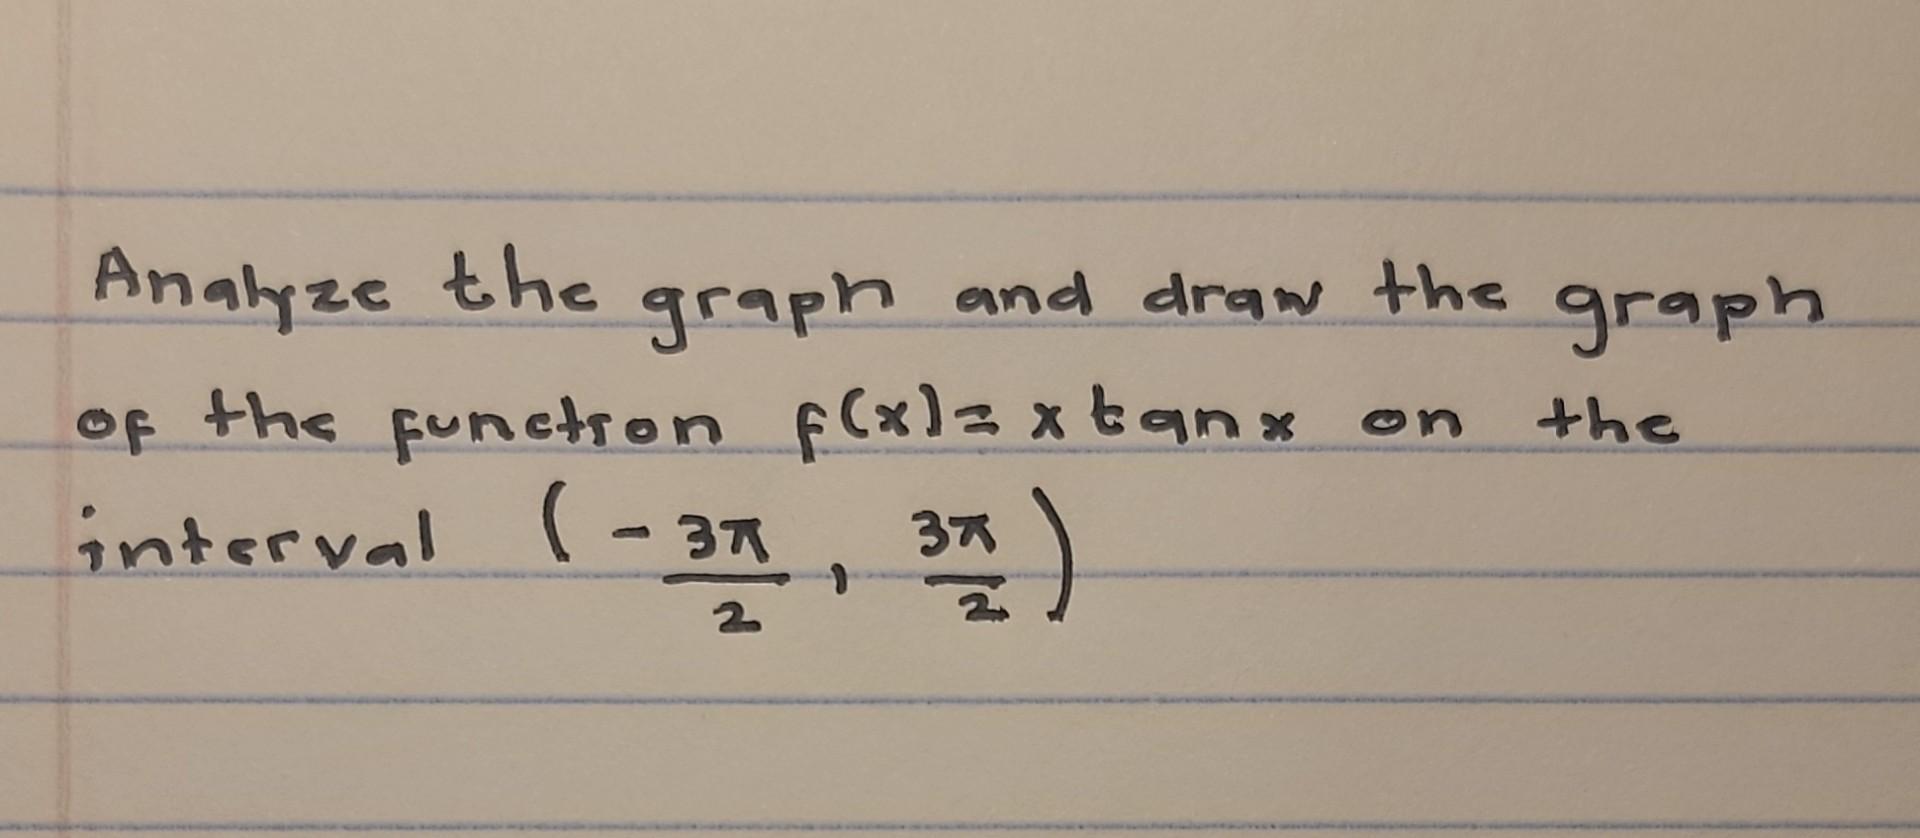 Analyze the graph and draw the graph
of the function f(x)= x tanx on the
interval (-3π/2, 3π/2)